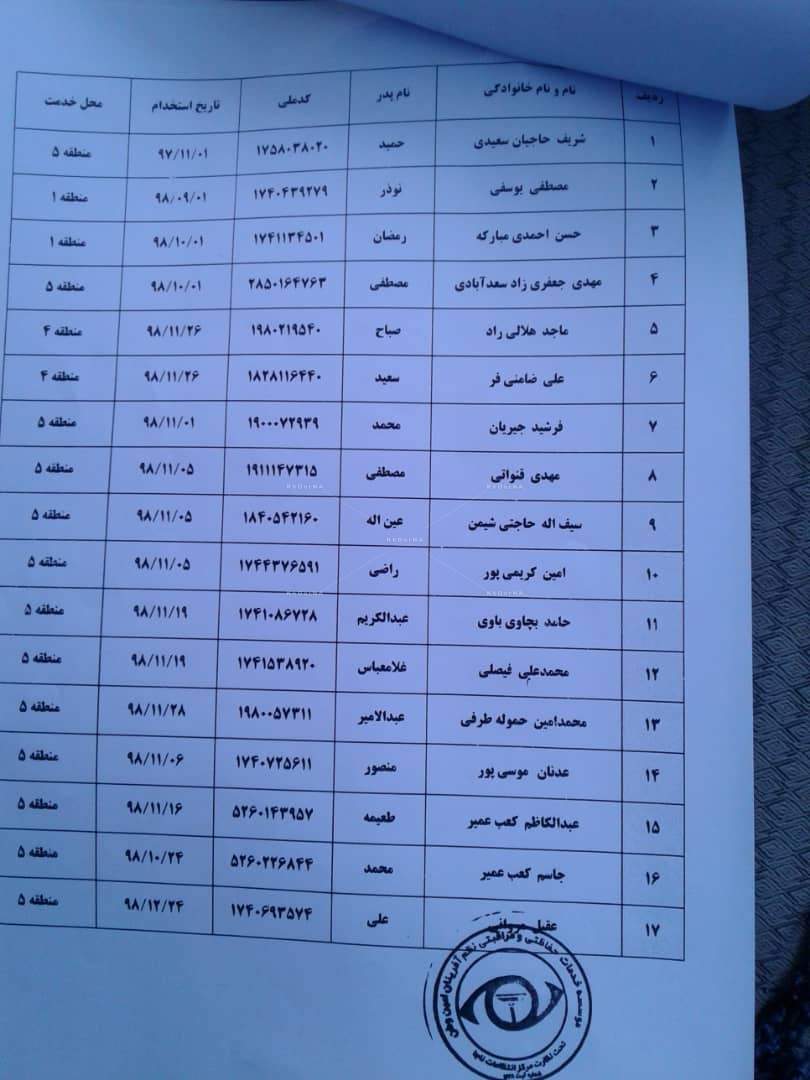 ردیف نام و نام خانوادگی نام پدر کدملی تاریخ استخدام محل خدمت
۱ شریف حاجیان سعیدی حمید ۱۷۵۸۰۳۸۰۲۰ ۹۷/۱۱/۰۱ منطقه ۵
۲ مصطفی یوسفی نوذر ۱۷۴۰۴۳۹۲۷۹ ۹۸/۰۹/۰۱ منطقه ۱
۳ حسن احمدی مبارکه رمضان ۱۷۴۱۱۳۴۵۰۱ ۹۸/۱۰/۰۱ منطقه ۱
۴ مهدی جعفری زاد سعدآبادی مصطفی ۲۸۵۰۱۶۴۷۶۳ ۹۸/۱۰/۰۱ منطقه ۵
۵ ماجد هلالی راد صباح ۱۹۸۰۲۱۹۵۴۰ ۹۸/۱۱/۲۶ منطقه ۴
۶ علی ضامنی فر سعید ۱۸۲۸۱۱۶۴۴۰ ۹۸/۱۱/۲۶ منطقه ۴
۷ فرشید جیریان محمد ۱۹۰۰۰۷۲۹۳۹ ۹۸/۱۱/۰۱ منطقه ۵
۸ مهدی قنواتی مصطفی ۱۹۱۱۱۴۷۳۱۵ ۹۸/۱۱/۰۵ منطقه ۵
۹ سیف اله حاجتی شیمن عین اله ۱۸۴۰۵۴۲۱۶۰ ۹۸/۱۱/۰۵ منطقه ۵
۱۰ امین کریمی پور راضی ۱۷۴۴۳۷۶۵۹۱ ۹۸/۱۱/۰۵ منطقه ۵
۱۱ حامد بچاوی باوی عبدالکریم ۱۷۴۱۰۸۶۷۲۸ ۹۸/۱۱/۱۹ منطقه ۵
۱۲ محمدعلی فیصلی غلامعباس ۱۷۴۱۵۳۸۹۲۰ ۹۸/۱۱/۱۹ منطقه ۵
۱۳ محمدامین حموله طرفی عبدالامیر ۱۹۸۰۰۵۷۳۱۱ ۹۸/۱۱/۲۸ منطقه ۵
۱۴ عدنان موسی پور منصور ۱۷۴۰۷۲۵۶۱۱ ۹۸/۱۱/۰۶ منطقه ۵
۱۵ عبدالکاظم کعب عمیر طعیمه ۵۲۶۰۱۴۳۹۵۷ ۹۸/۱۱/۱۶ منطقه ۵
۱۶ جاسم کعب عمیر محمد ۵۲۶۰۲۲۶۸۴۴ ۹۸/۱۰/۲۴ منطقه ۵
۱۷ عقیل علی ۱۷۴۰۶۹۳۵۷۴ ۹۸/۱۲/۲۴ منطقه ۵
موسسه خدمات حفاظتی و مراقبتی نظم آفرینان امین
تحت نظارت مرکز انتظامات ناجا